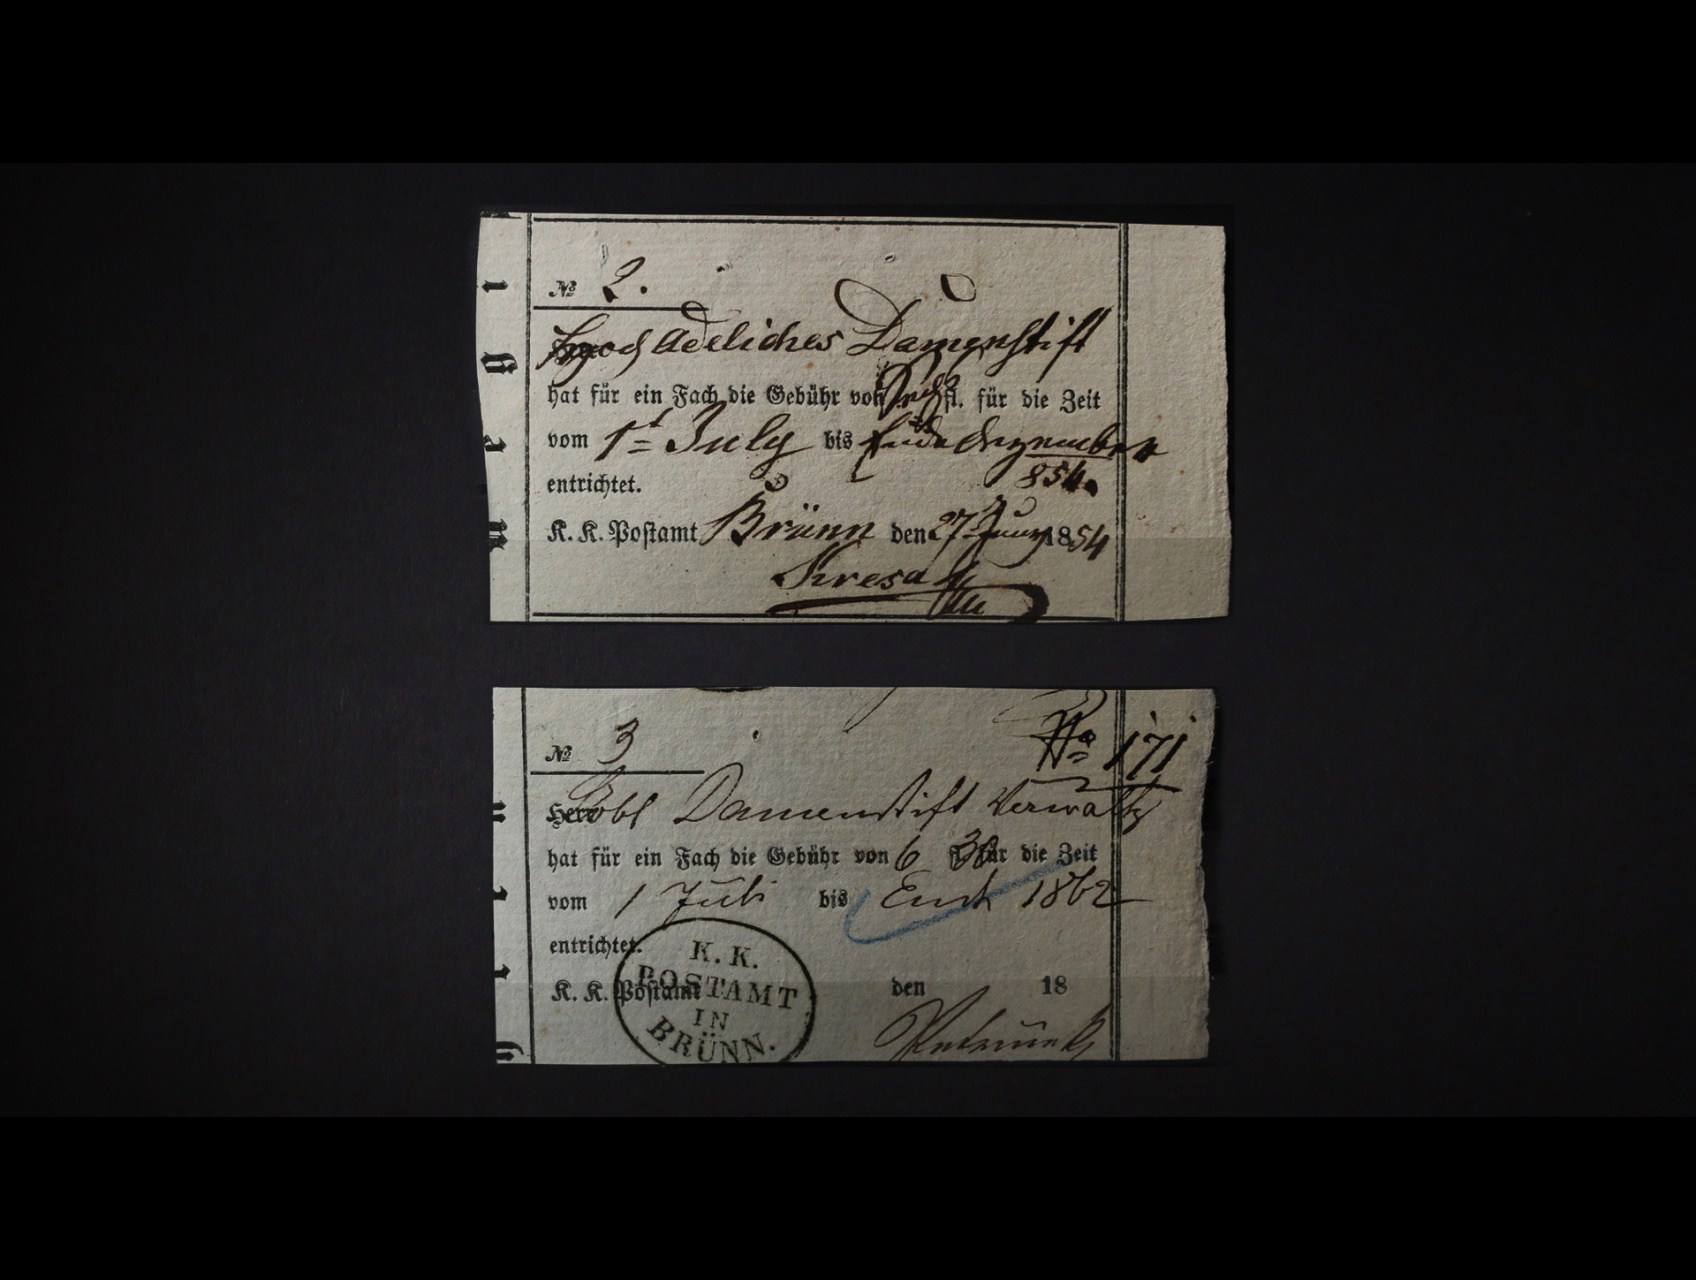 № 2.
Hochadeliches Damenstift
hat für ein Fach die Gebühr von Sechs fl. für die Zeit
vom 1t July bis Ende Dezember
854.
entrichtet.
K. K. Postamt Brünn den 27 Juny 1854
Kresa
№ 3
No 171
Löbl Damenstift Verwaltg
hat für ein Fach die Gebühr von 6 fl. 30 für die Zeit
vom 1 Juli bis Ende 1862
entrichtet.
K. K. Postamt den 18
K. K.
POSTAMT
IN
BRÜNN.